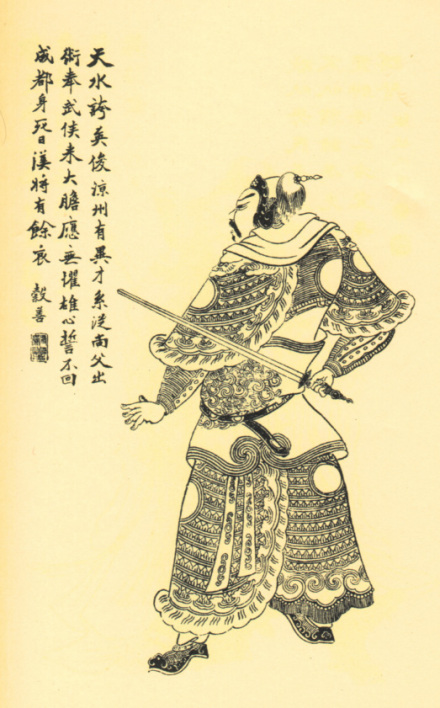 天水誇英俊涼州有異才系從尚父出
術奉武侯來大膽應無懼雄心誓不回
成都身死日漢將有餘哀 穀善